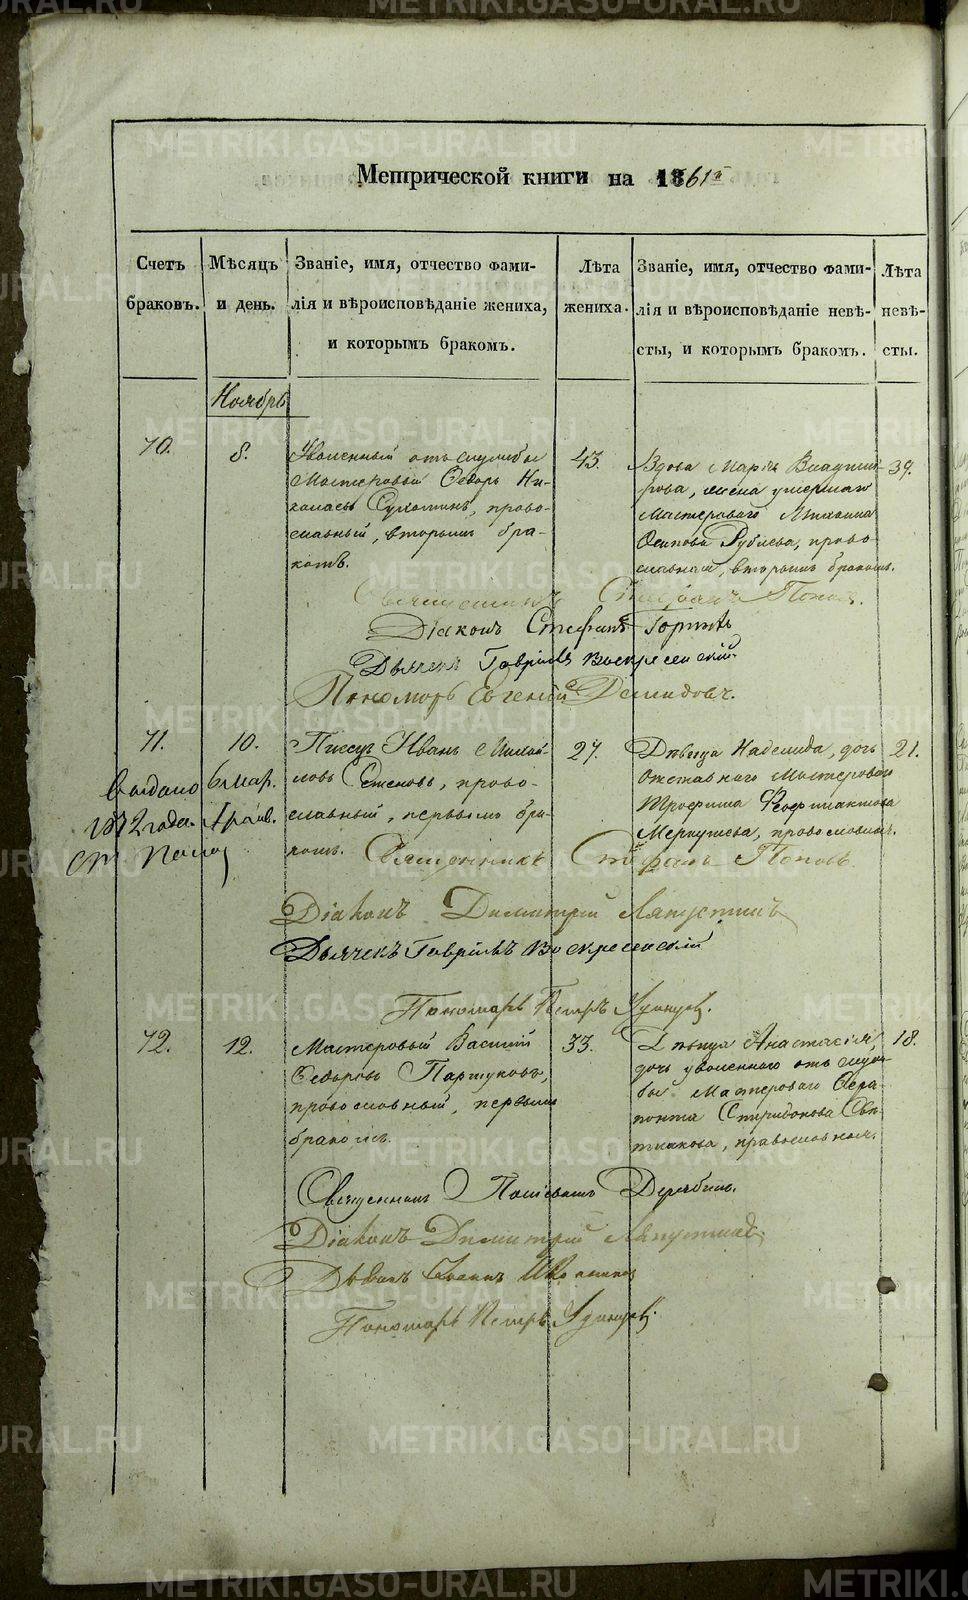 Метрической книги на 1861й
Счетъ браковъ.
Мѣсяцъ и день.
Званіе, имя, отчество фами-
лія и вѣроисповѣданіе жениха,
и которымъ бракомъ.
Лѣта жениха.
Званіе, имя, отчество фами-
лія и вѣроисповѣданіе невѣ-
сты, и которымъ бракомъ.
Лѣта невѣ-
сты.
Ноябрь
70.
8.
Уволенный отъ службы
Мастеровый Ѳедоръ Ни-
колаевъ, право-
славный, вторымъ бра-
комъ.
43.
Вдова Марѳа Владими-
рова, жена умершаго
Мастероваго Михаила
Осипова Рублева, право-
славная, вторымъ бракомъ.
39.
Священникъ Стефанъ Поповъ.
Діаконъ Стефанъ
Дьячекъ Гавріилъ Воскресенскій
Пономарь Евгеній Демидовъ.
71.
10.
Писецъ Иванъ Михай-
ловъ, право-
славный, первымъ бра-
комъ.
27.
Дѣвица Надежда, дочь
отставнаго Мастероваго
Трофима Ѳеофилактова
Меркушева, православная.
21.
Выдано 6 мар.
1872 года.
Священникъ Стефанъ Поповъ
Діаконъ Димитрій Ляпустинъ
Дьячекъ Гавріилъ Воскресенскій
Пономарь Петръ Удинцевъ.
72.
12.
Мастеровый Василій
Ѳедоровъ Партуковъ,
православный, первымъ
бракомъ.
33.
Дѣвица Анастасія,
дочь уволеннаго отъ служ-
бы Мастероваго Ѳера-
понта Спиридонова Свѣ-
тлакова, православная.
18.
Священникъ Дерябинъ.
Діаконъ Димитрій Ляпустинъ
Пономарь Петръ Удинцевъ.
METRIKI.GASO-URAL.RU